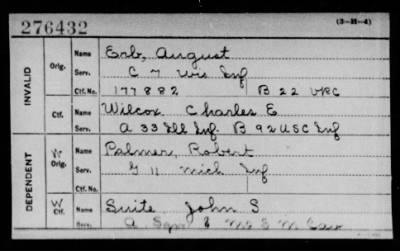 276432 (3-H-4)
INVALID Orig. Name Erb, August
Serv. C 7 Wis Inf
Ctf. No. 177882 B 22 VRC
Ctf. Name Wilcox Charles E
Serv. A 33 Ill Inf. B 92 USC Inf
DEPENDENT W Orig. Name Palmer, Robert
Serv. G 11 Mich Inf
Ctf. No.
W Ctf. Name Suite John S
Serv. A & Mo S M Cav